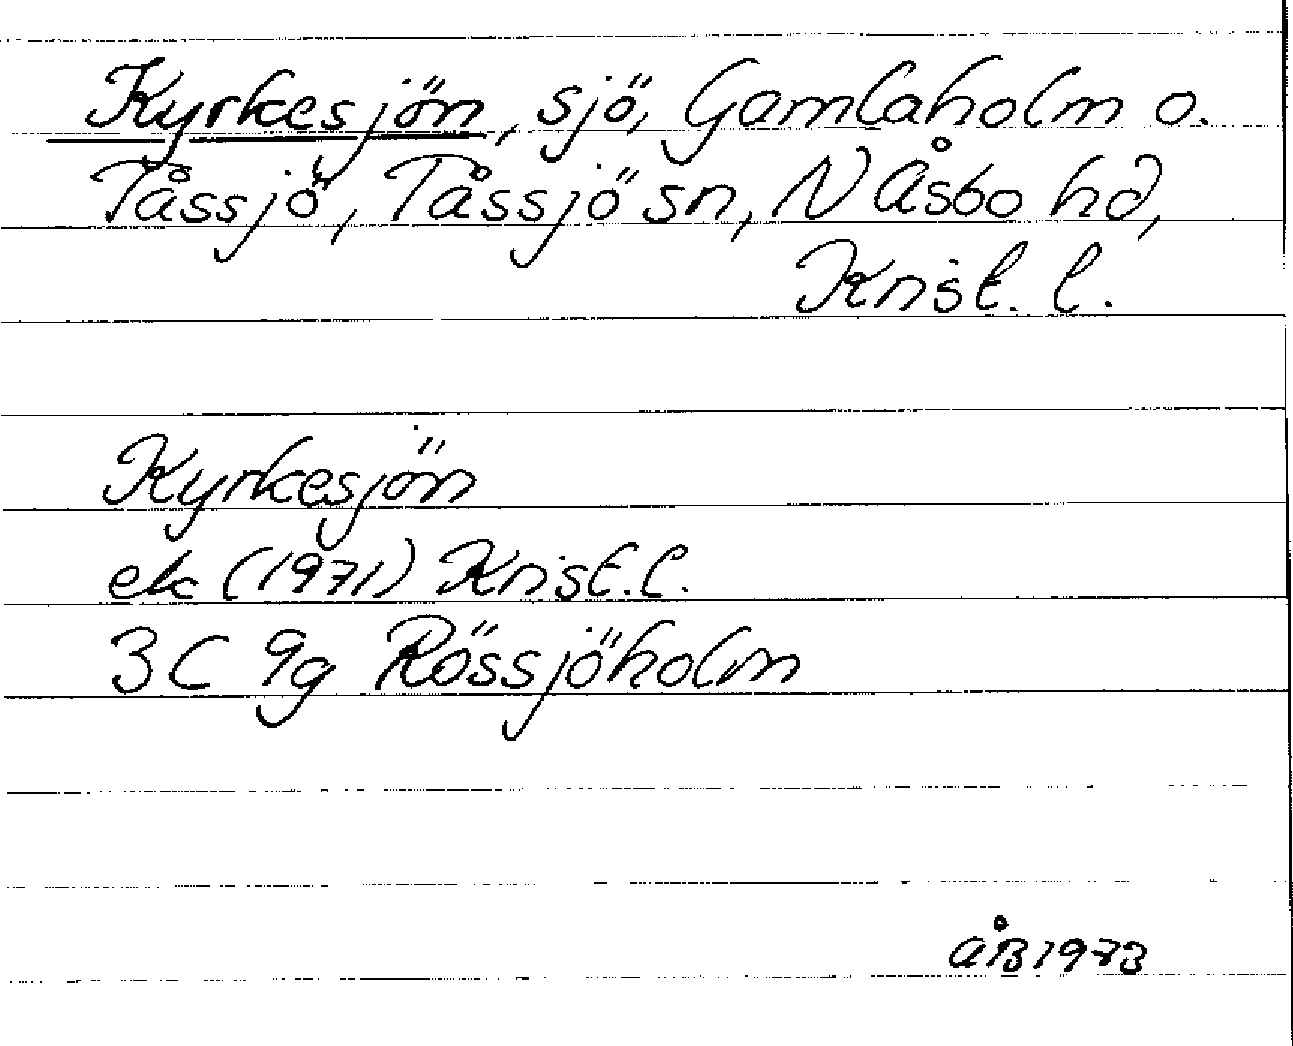 Kyrkesjön, sjö, Gamlaholm o.
Tåssjö, Tåssjö sn, N Åsbo hd,
Krist. l.
Kyrkesjön
ek (1971) Krist. l.
3C 9g Rössjöholm
ÅB 1973